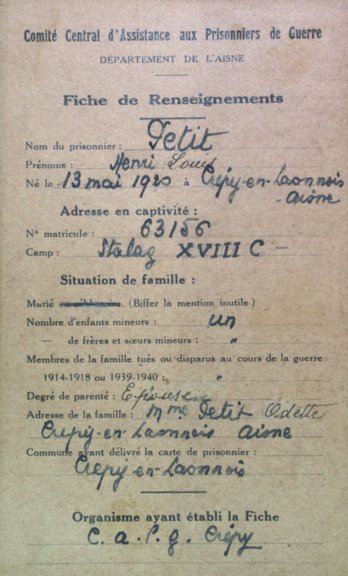 Comité Central d'Assistance aux Prisonniers de Guerre
DÉPARTEMENT DE L'AISNE
Fiche de Renseignements
Nom du prisonnier : Petit
Prénoms : Henri Louis
Né le 13 mai 1920 à Crépy-en-Laonnois
-Aisne
Adresse en captivité :
N° matricule : 63156
Camp : Stalag XVIII C —
Situation de famille :
Marié (Biffer la mention inutile)
Nombre d'enfants mineurs : un
— de frères et sœurs mineurs : "
Membres de la famille tués ou disparus au cours de la guerre
1914-1918 ou 1939-1940 : "
Degré de parenté : Epouse
Adresse de la famille : Mme Petit Odette
Crépy-en-Laonnois Aisne
Commune ayant délivré la carte de prisonnier :
Crépy-en-Laonnois
Organisme ayant établi la Fiche
C. a. P. g. Crépy